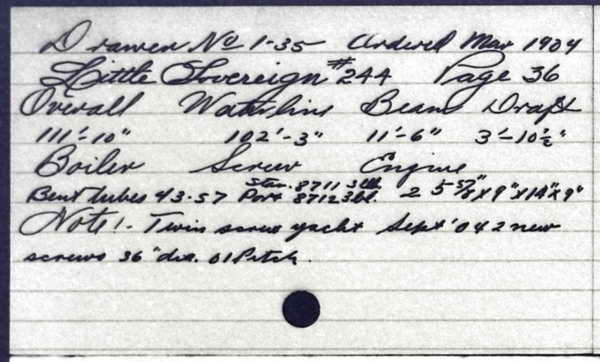 Drawer No 1-35 Ordered Mar 1904
Little Sovereign #244 Page 36
Overall Waterline Beam Draft
111'-10" 102'-3" 11'-6" 3'-10½"
Boiler Screw Engine
Bent tubes 43.57 Star. 8711 3 bl. Port 8712 3 bl. 2 5-57" x 9" x 14" x 9"
Note:- Twin screw yacht Sept '04 2 new
screws 36" dia. 01 Pitch.